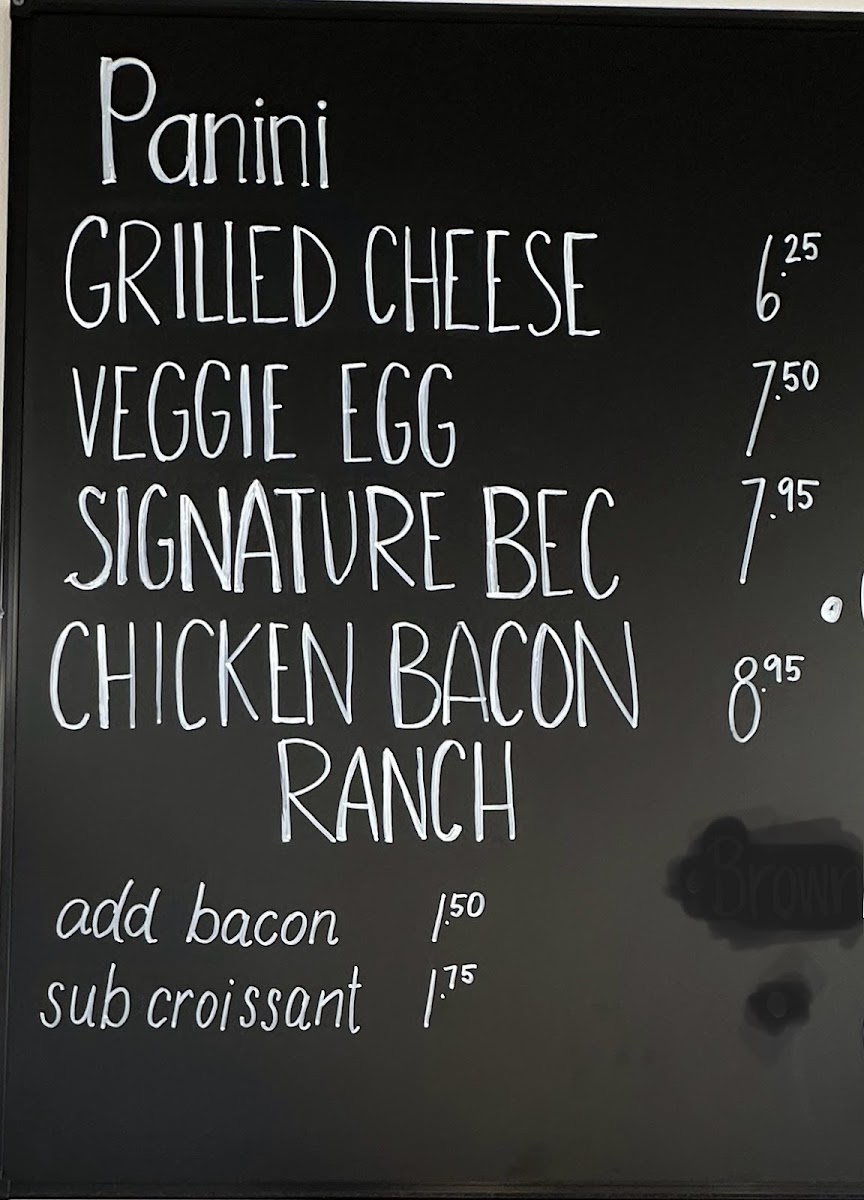 Panini
GRILLED CHEESE 6.25
VEGGIE EGG 7.50
SIGNATURE BEC 7.95
CHICKEN BACON 8.95
RANCH
add bacon 1.50
sub croissant 1.75